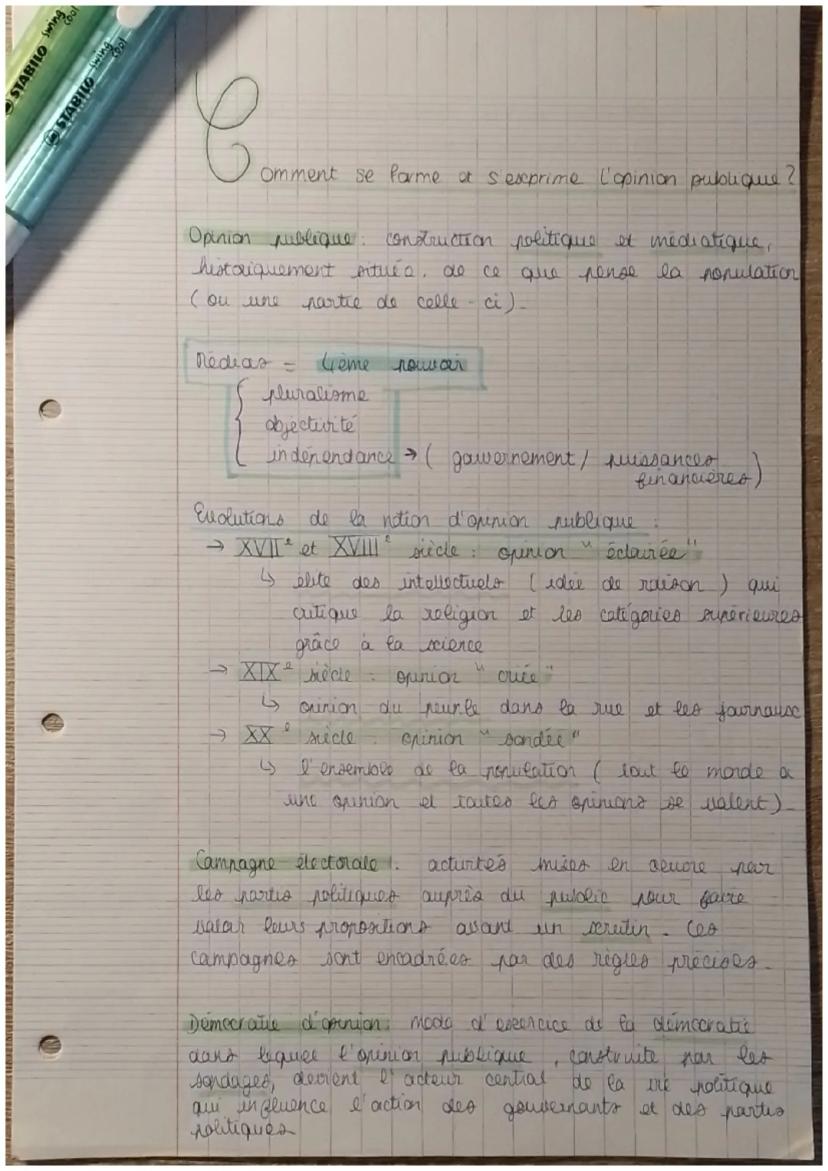 STABILO swing cool
STABILO swing cool
Comment se forme et s'exprime l'opinion publique ?
Opinion publique : construction politique et médiatique,
historiquement située, de ce que pense la population
(ou une partie de celle-ci).
Médias = 4ème pouvoir
pluralisme
objectivité
indépendance → ( gouvernement / puissances
financières )
Evolutions de la notion d'opinion publique :
→ XVIIe et XVIIIe siècle : opinion "éclairée"
↳ élite des intellectuels ( idée de raison ) qui
critique la religion et les catégories supérieures
grâce à la science
→ XIXe siècle : opinion "criée"
↳ opinion du peuple dans la rue et les journaux
→ XXe siècle : opinion "sondée"
↳ l'ensemble de la population ( tout le monde a
une opinion et toutes les opinions se valent ).
Campagne électorale : activités mises en œuvre par
les partis politiques auprès du public pour faire
valoir leurs propositions avant un scrutin. Ces
campagnes sont encadrées par des règles précises.
Démocratie d'opinion : mode d'exercice de la démocratie
dans lequel l'opinion publique, construite par les
sondages, devient l'acteur central de la vie politique
qui influence l'action des gouvernants et des partis
politiques.